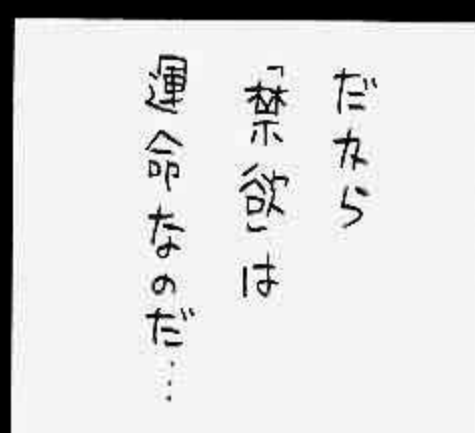 だから
「禁欲」は
運命なのだ…